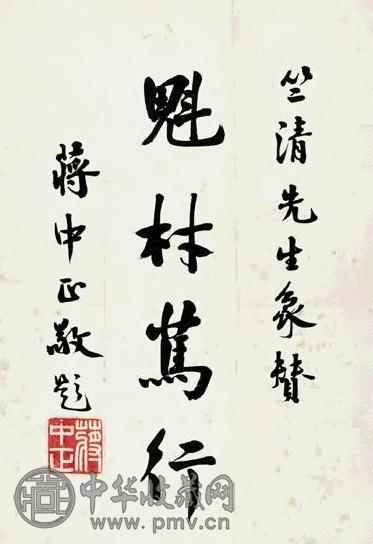 竺清先生象贊
魁材篤行
蔣中正敬題
蔣中正
中华收藏网
www.pmv.cn